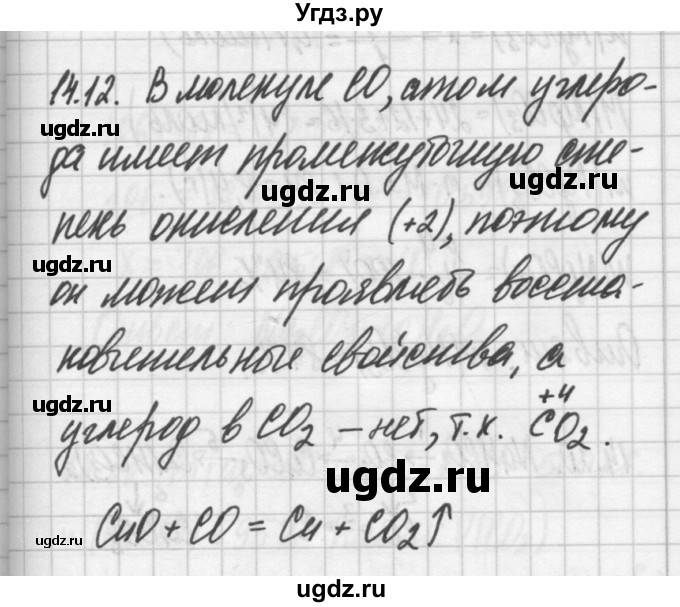 Угдз.ру
14.12. В молекуле CO, атом углеро-
ugdz.ru
да имеет промежуточную сте-
ugdz.ru
ugdz.ru
пень окисления (+2), поэтому
ugdz.ru
он может проявлять восста-
новительные свойства, а
ugdz.ru
+4
углерод в CO2 – нет, т.к. CO2.
ugdz.ru
CuO + CO = Cu + CO2↑
ugdz.ru
ugdz.ru